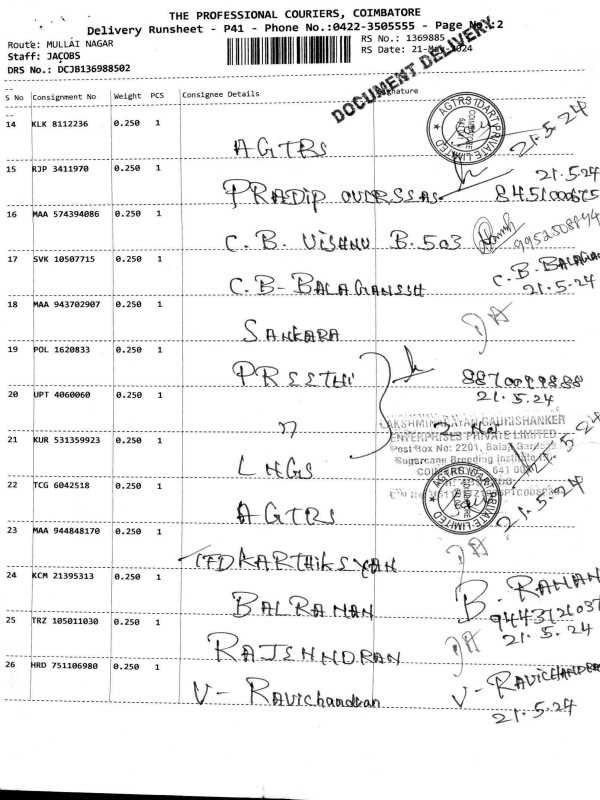 THE PROFESSIONAL COURIERS, COIMBATORE
Delivery Runsheet - P41 - Phone No.:0422-3505555 - Page No.:2
Route: MULLAI NAGAR
RS No.: 1369885
Staff: JACOBS
RS Date: 21-May-2024
DRS No.: DCJB136988502
DOCUMENT DELIVERY
S No Consignment No Weight PCS Consignee Details Signature
14 KLK 8112236 0.250 1
AGTRS 21-5-24
AGTRS IDART PRIVATE LIMITED
15 RJP 3411970 0.250 1
21.5.24
PRADIP OVERSSAS 8451000675
16 MAA 574394086 0.250 1
C. B. VISHNU B.503
17 SVK 10507715 0.250 1
C.B-BALAGANSSH
21.5.24
18 MAA 943702907 0.250 1
SANKARA
19 POL 1620833 0.250 1
PREETHI
21.5.24
20 UPT 4060060 0.250 1
"
LAKSHMINARAYAN GAURISHANKER
ENTERPRISES PRIVATE LIMITED
Post Box No: 2201, Balaji Gardens
Sugarcane Breeding Institute
21 KUR 531359923 0.250 1
LNGS
22 TCG 6042518 0.250 1
AGTRS
AGTRS IDART PRIVATE LIMITED
21-5-24
23 MAA 944848170 0.250 1
KARTHIKSYAN
24 KCM 21395313 0.250 1
BALRAMAN B-RAMAN
21.5.24
25 TRZ 105011030 0.250 1
RAJSHNDRAN
26 HRD 751106980 0.250 1
V- RAVIchandran V-RAVICHANDRAN
21.5.24